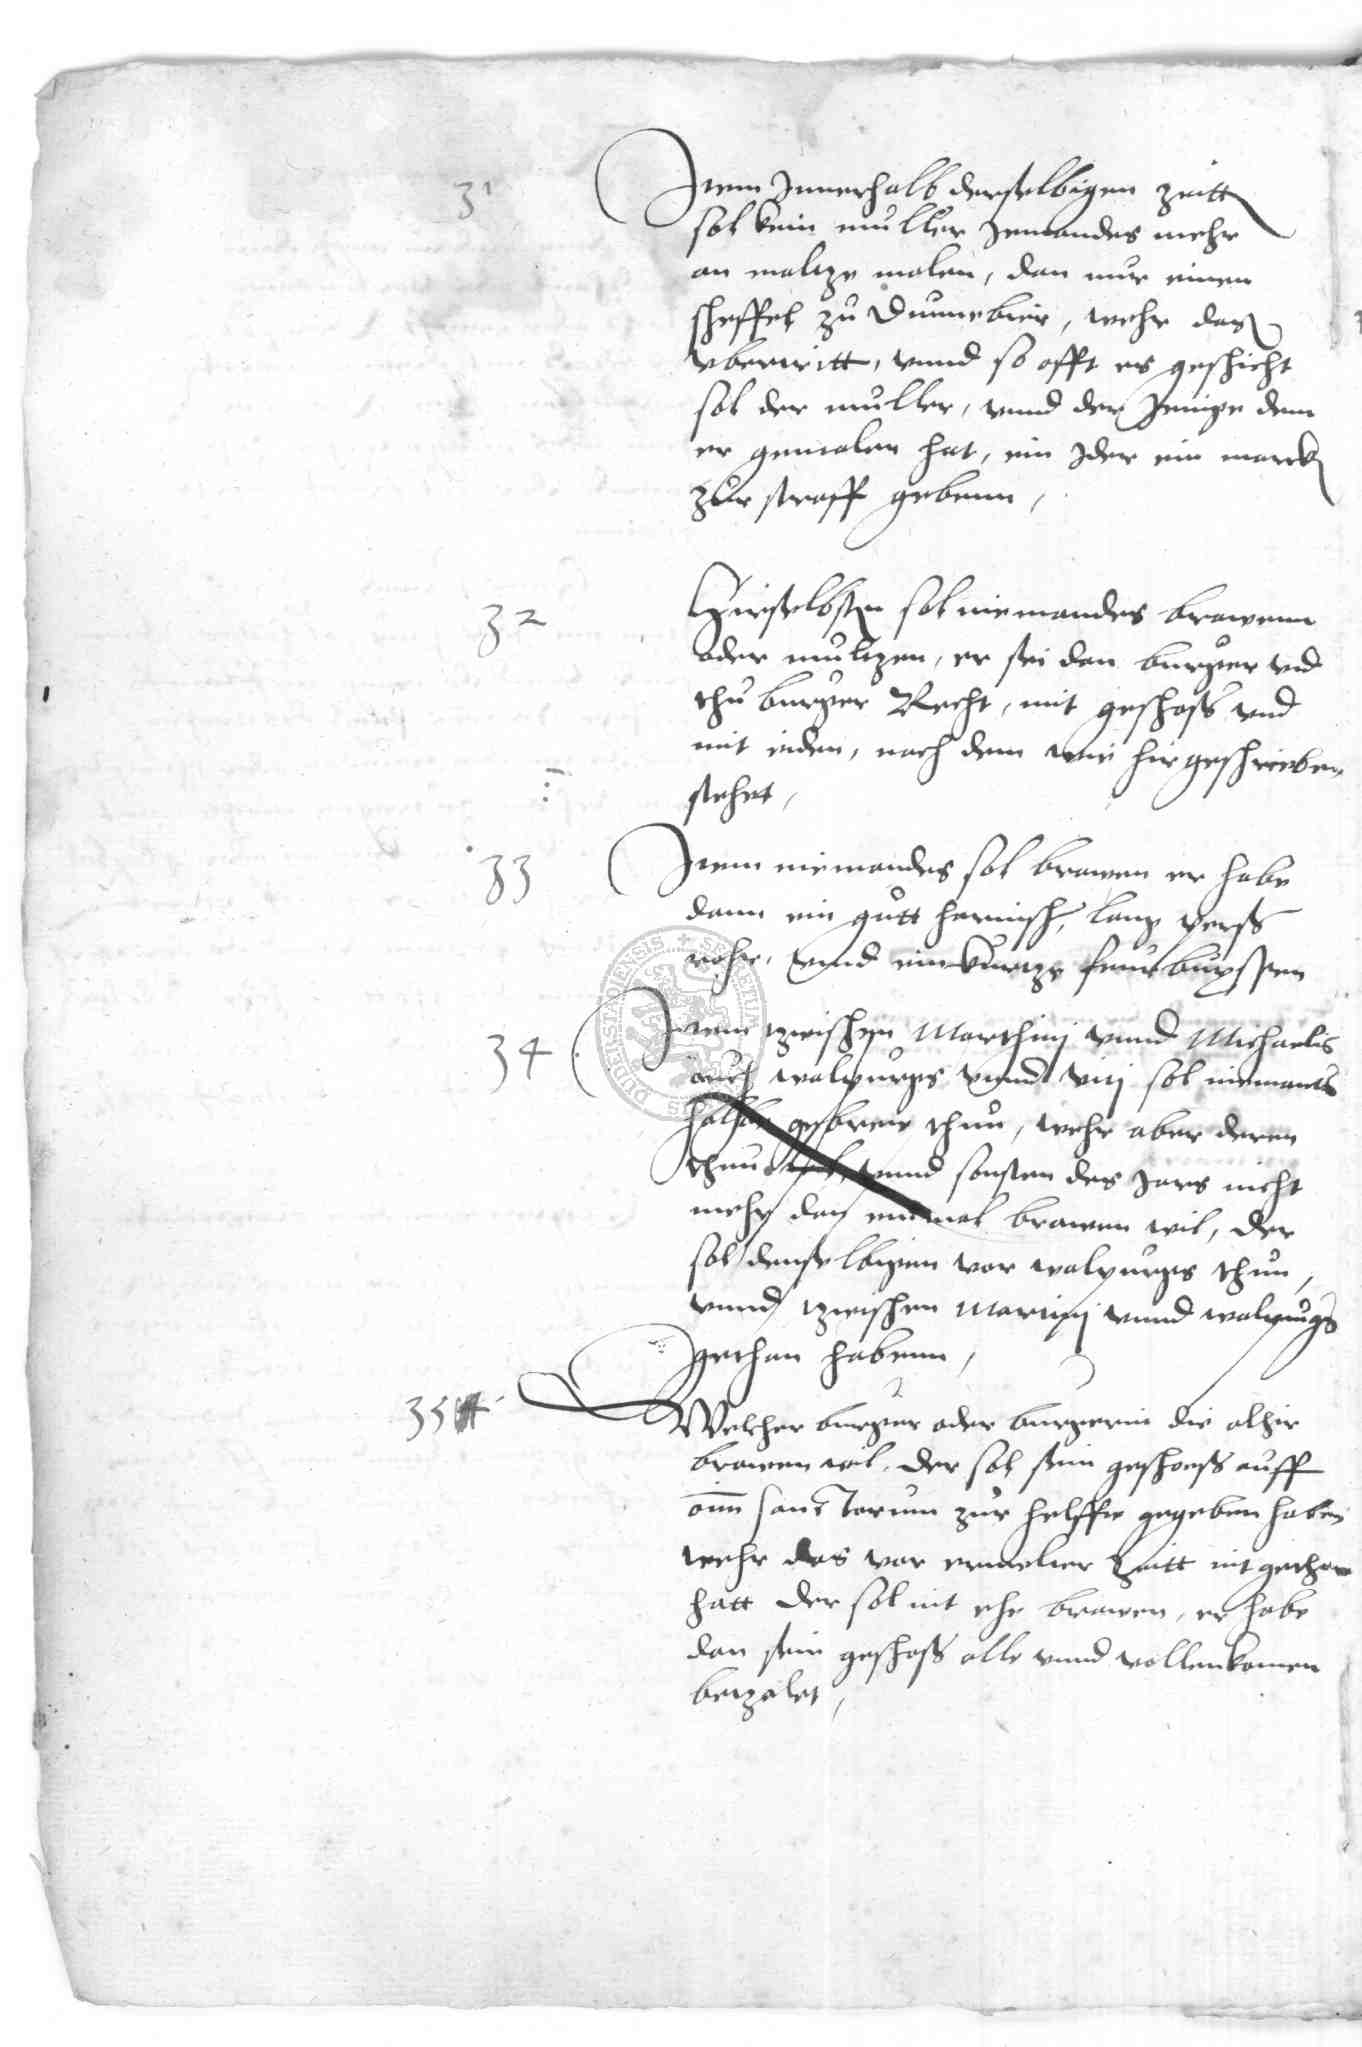 31
Item Innerhalb derselbigen zeitt
sol kein muller Jemandes mehr
an maltze malen, dan nur einen
scheffel zu Dunnebier, wehr das
vbertritt, vnnd so offt es geschicht
sol der muller, vnnd der Jenige dem
er gemalen hat, ein Jder ein marck
zur straff gebenn,
32
Hirselbsten sol niemandes brawenn
oder multzen, er sei dan burger vnd
thu burger Recht, mit geschoss vnd
mit eiden, nach dem wie hir geschrieben
stehet,
33
Item niemandes sol brawen er habe
dann ein gutt harnisch, lang
rohr, vnnd ein kurtze feurbuxssen
34
Item tzwischen Marthinj vnnd Michaelis
auch walpurgs vnnd vitj sol niemants
halbe gebrew thun, wehr aber deren
thun vnnd sonsten des Jars nicht
mehr dan einmal brawen wil, der
sol denselbigen vor walpurgs thun,
vnnd tzwischen Martinj vnnd walpurgs
gethan habenn,
35
Welcher burger oder burgerin die alhir
brawen wil, der sol sein geschoess auff
oim sanctorum zur helffte gegeben haben
wehr das vor ermelter Zeitt nit gethan
hatt der sol nit ehe brawen, er habe
dan sein geschoss alle vnnd vollenkomen
betzalet,